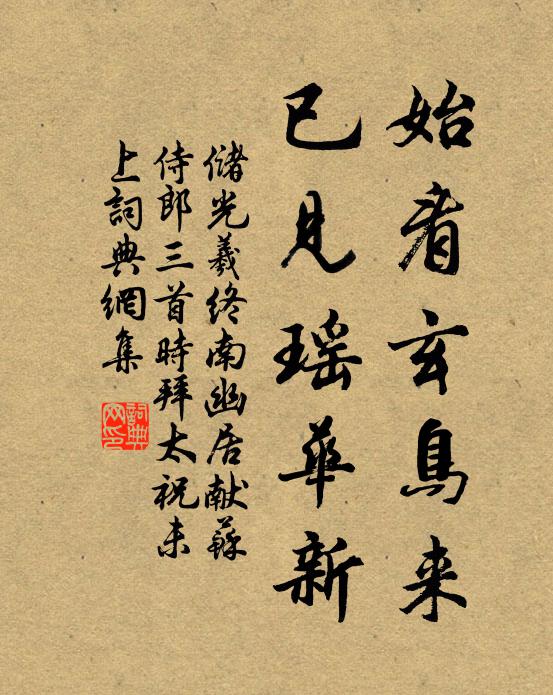 始看玄鳥来
已見瑶華新
儲光羲终南幽居献蘇
侍郎三首時拜太祝未
上詞典網集
詞典网印